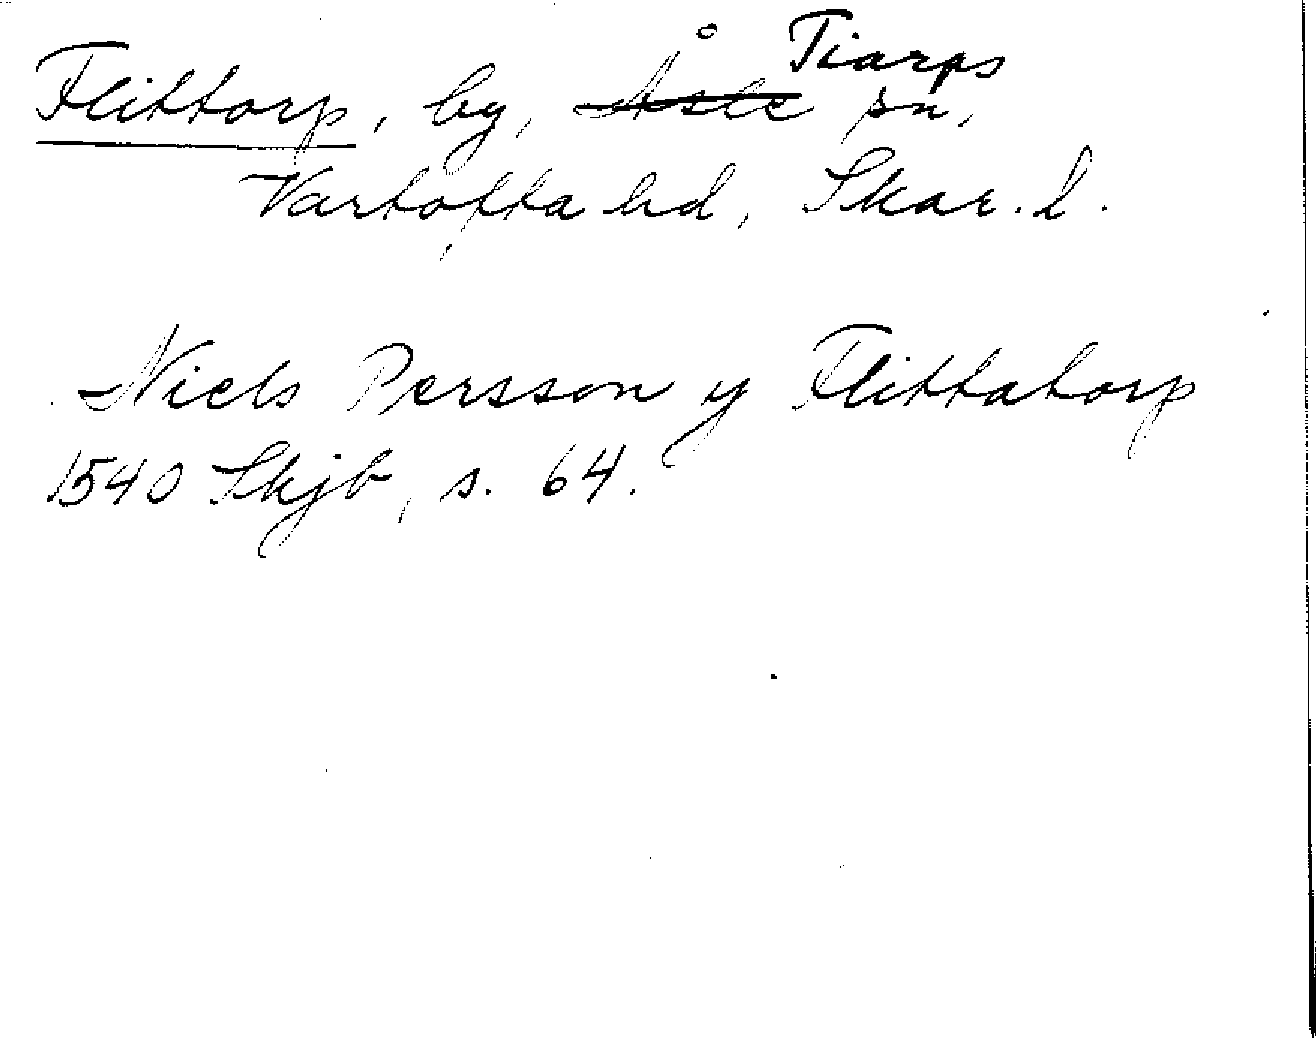 Flittorp, by, Åsle Tiarps sn,
Vartofta hd, Skar. l.
Niels Persson y Flittatorp
1540 Skjb, s. 64.